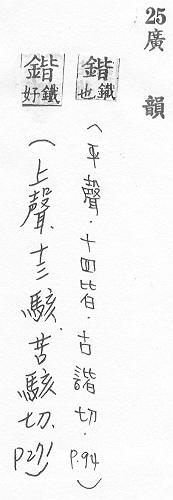 25廣韻
鍇鐵也
(平聲.十四皆.古諧切.P.94)
鍇鐵好
(上聲.十三駭.苦駭切.P271)